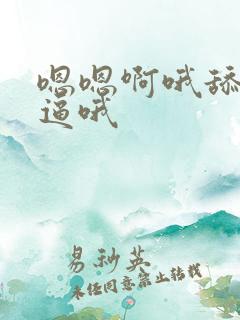 嗯嗯啊哦舔
逼哦
易秋英
未经同意禁止转载